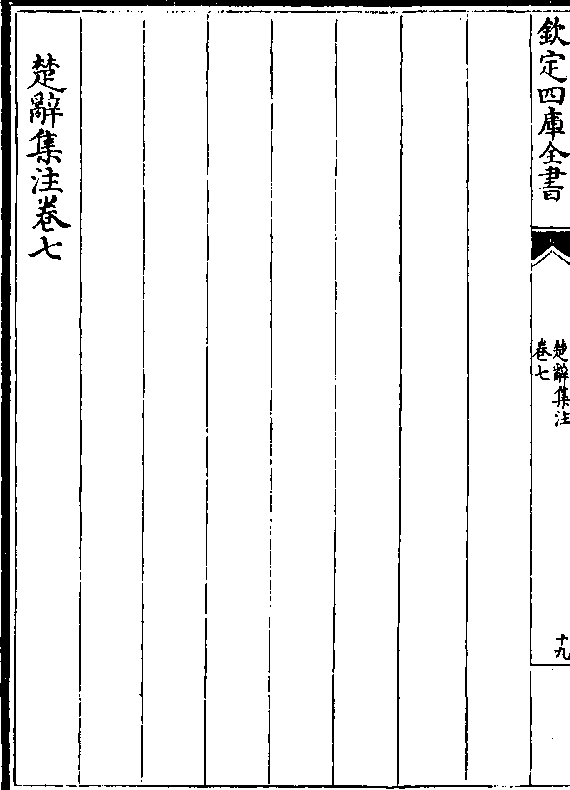 欽定四庫全書
楚辭集注
卷七
十九
楚辭集注卷七